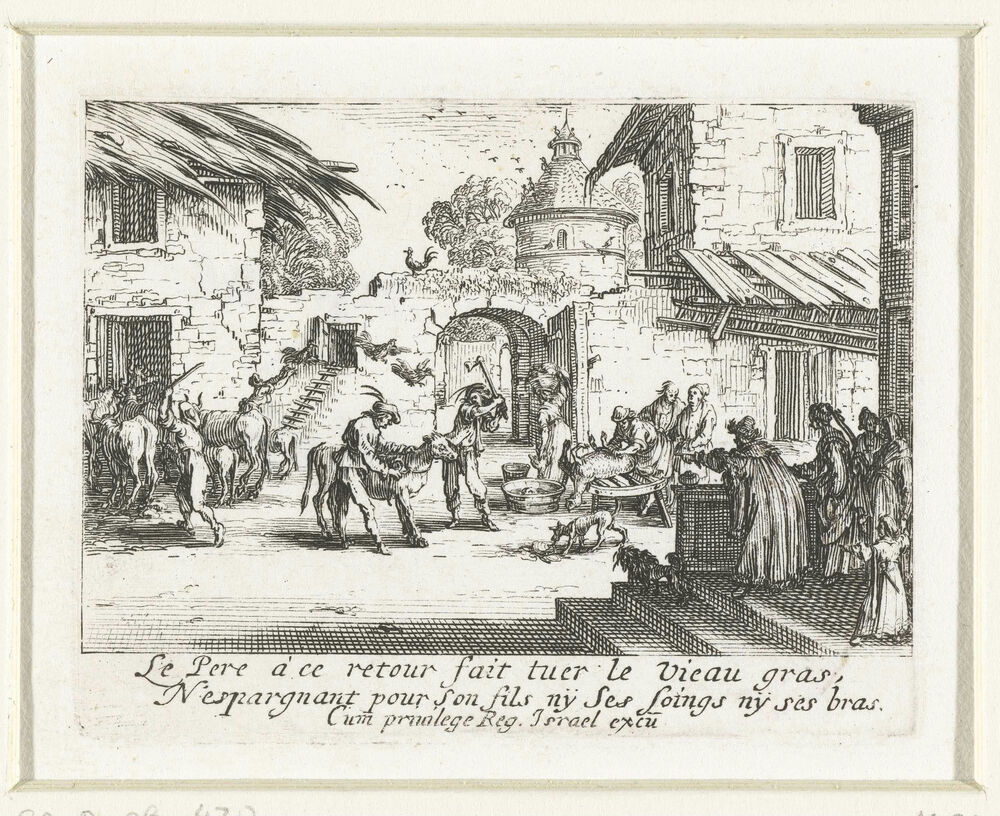 Le Pere à ce retour fait tuer le Vieau gras,
N'espargnant pour son fils nÿ Ses soings nÿ ses bras.
Cum priuilege Reg. Israel excū